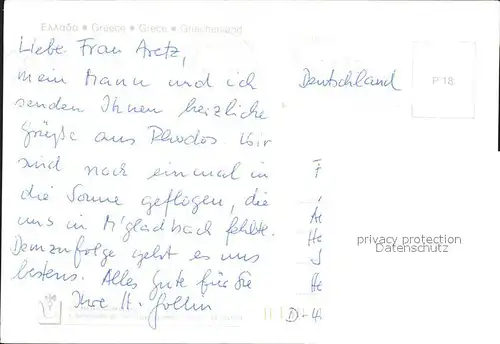 Ελλαδα • Greece • Grèce • Griechenland
Liebe Frau Aretz,
mein Mann und ich
senden Ihnen herzliche
Grüße aus Rhodos. Wir
sind noch einmal in
die Sonne geflogen, die
uns in M'gladbach fehlte.
Demzufolge geht es uns
bestens. Alles Gute für Sie
Ihre H. Gollin
Deutschland
P 18
F
Ar
He
He
D-4
privacy protection
Datenschutz